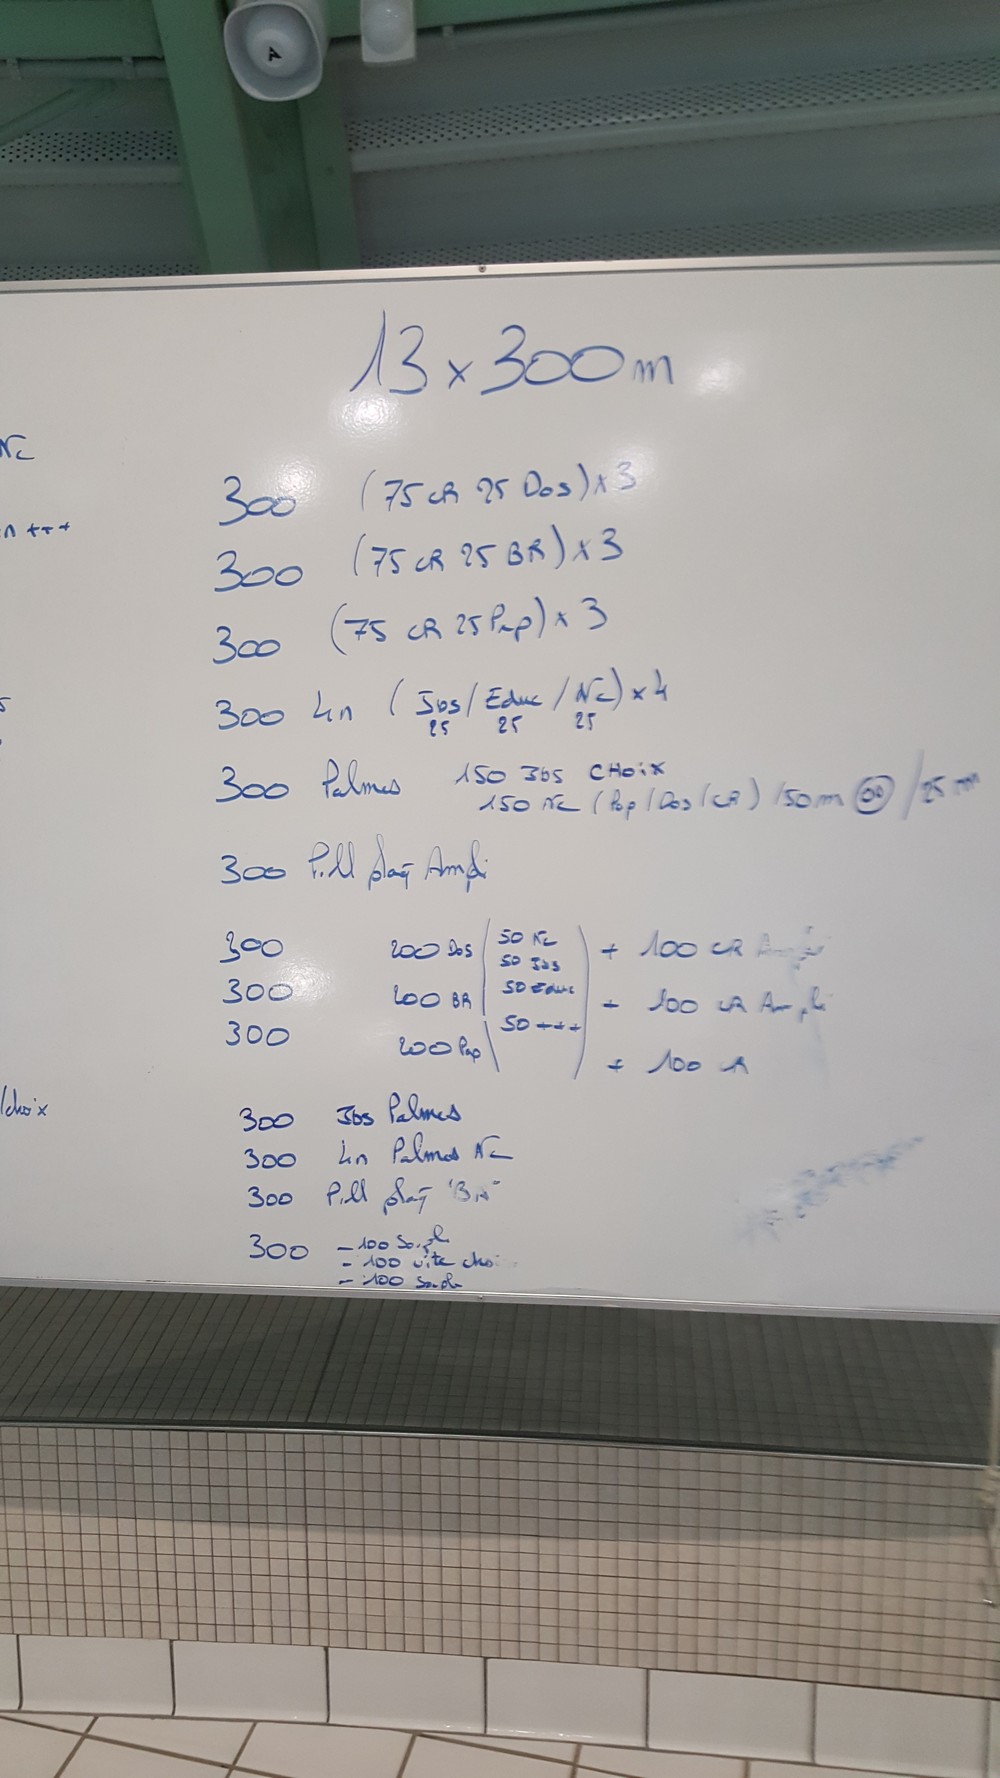 A
13 x 300 m
Nc
n +++
300 (75 CR 25 Dos) x 3
300 (75 CR 25 BR) x 3
300 (75 CR 25 Pap) x 3
300 4n (Jbs / Educ / Nc) x 4
25 25 25
300 Palmes 150 Jbs CHOIX
150 Nc (Pap / Dos / CR) /50m /25 m
300 Pull plaq Ampli
300 200 Dos 50 Nc + 100 CR Ampli
50 Jbs
300 200 BR 50 Educ + 100 CR Ampli
300 200 Pap 50 +++ + 100 CR
/choix
300 Jbs Palmes
300 4n Palmes Nc
300 Pull plaq
300 - 100 Soupl
- 100 vite choi
- 100 Soupl